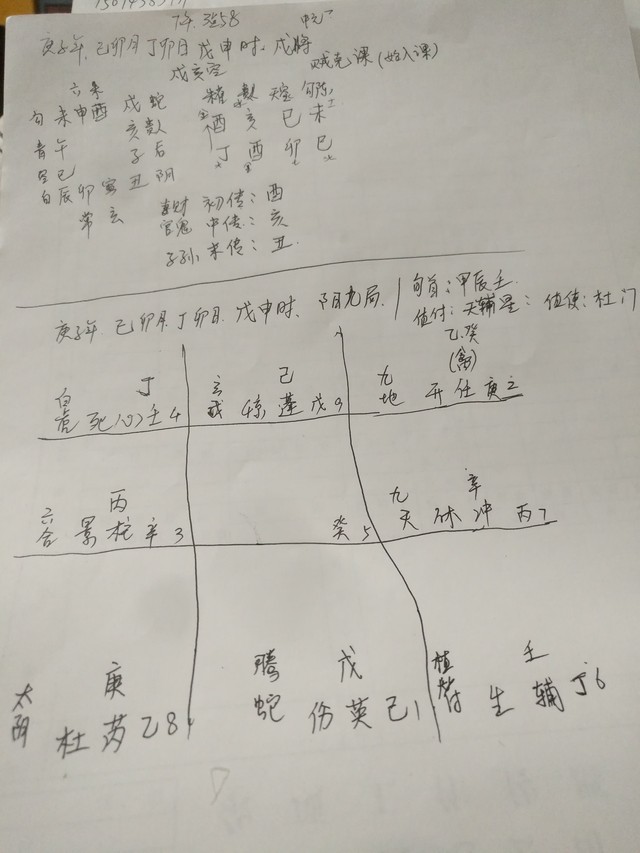 庚子年、己卯月丁卯日戊申时、戌将
戌亥空 贼克课(始入课)
六朱
勾未申酉戌蛇
青午 亥
空巳 子后
白辰卯寅丑阴
常玄
酉亥巳未
丁酉卯巳
妻财 初传：酉
官鬼 中传：亥
子孙 末传：丑
庚子年、己卯月丁卯日、戊申时、阳九局
旬首：甲辰壬
值付：天辅星： 值使：杜门
乙癸
(禽)
丁 己 九
白虎 死心壬4
惊蓬戊9
地 开任庚2
丙 九 辛
六合 景柱辛3
癸5
天 休冲丙7
庚 腾 戊 壬
太阴 杜芮乙8
蛇 伤英己1
值符 生辅丁6